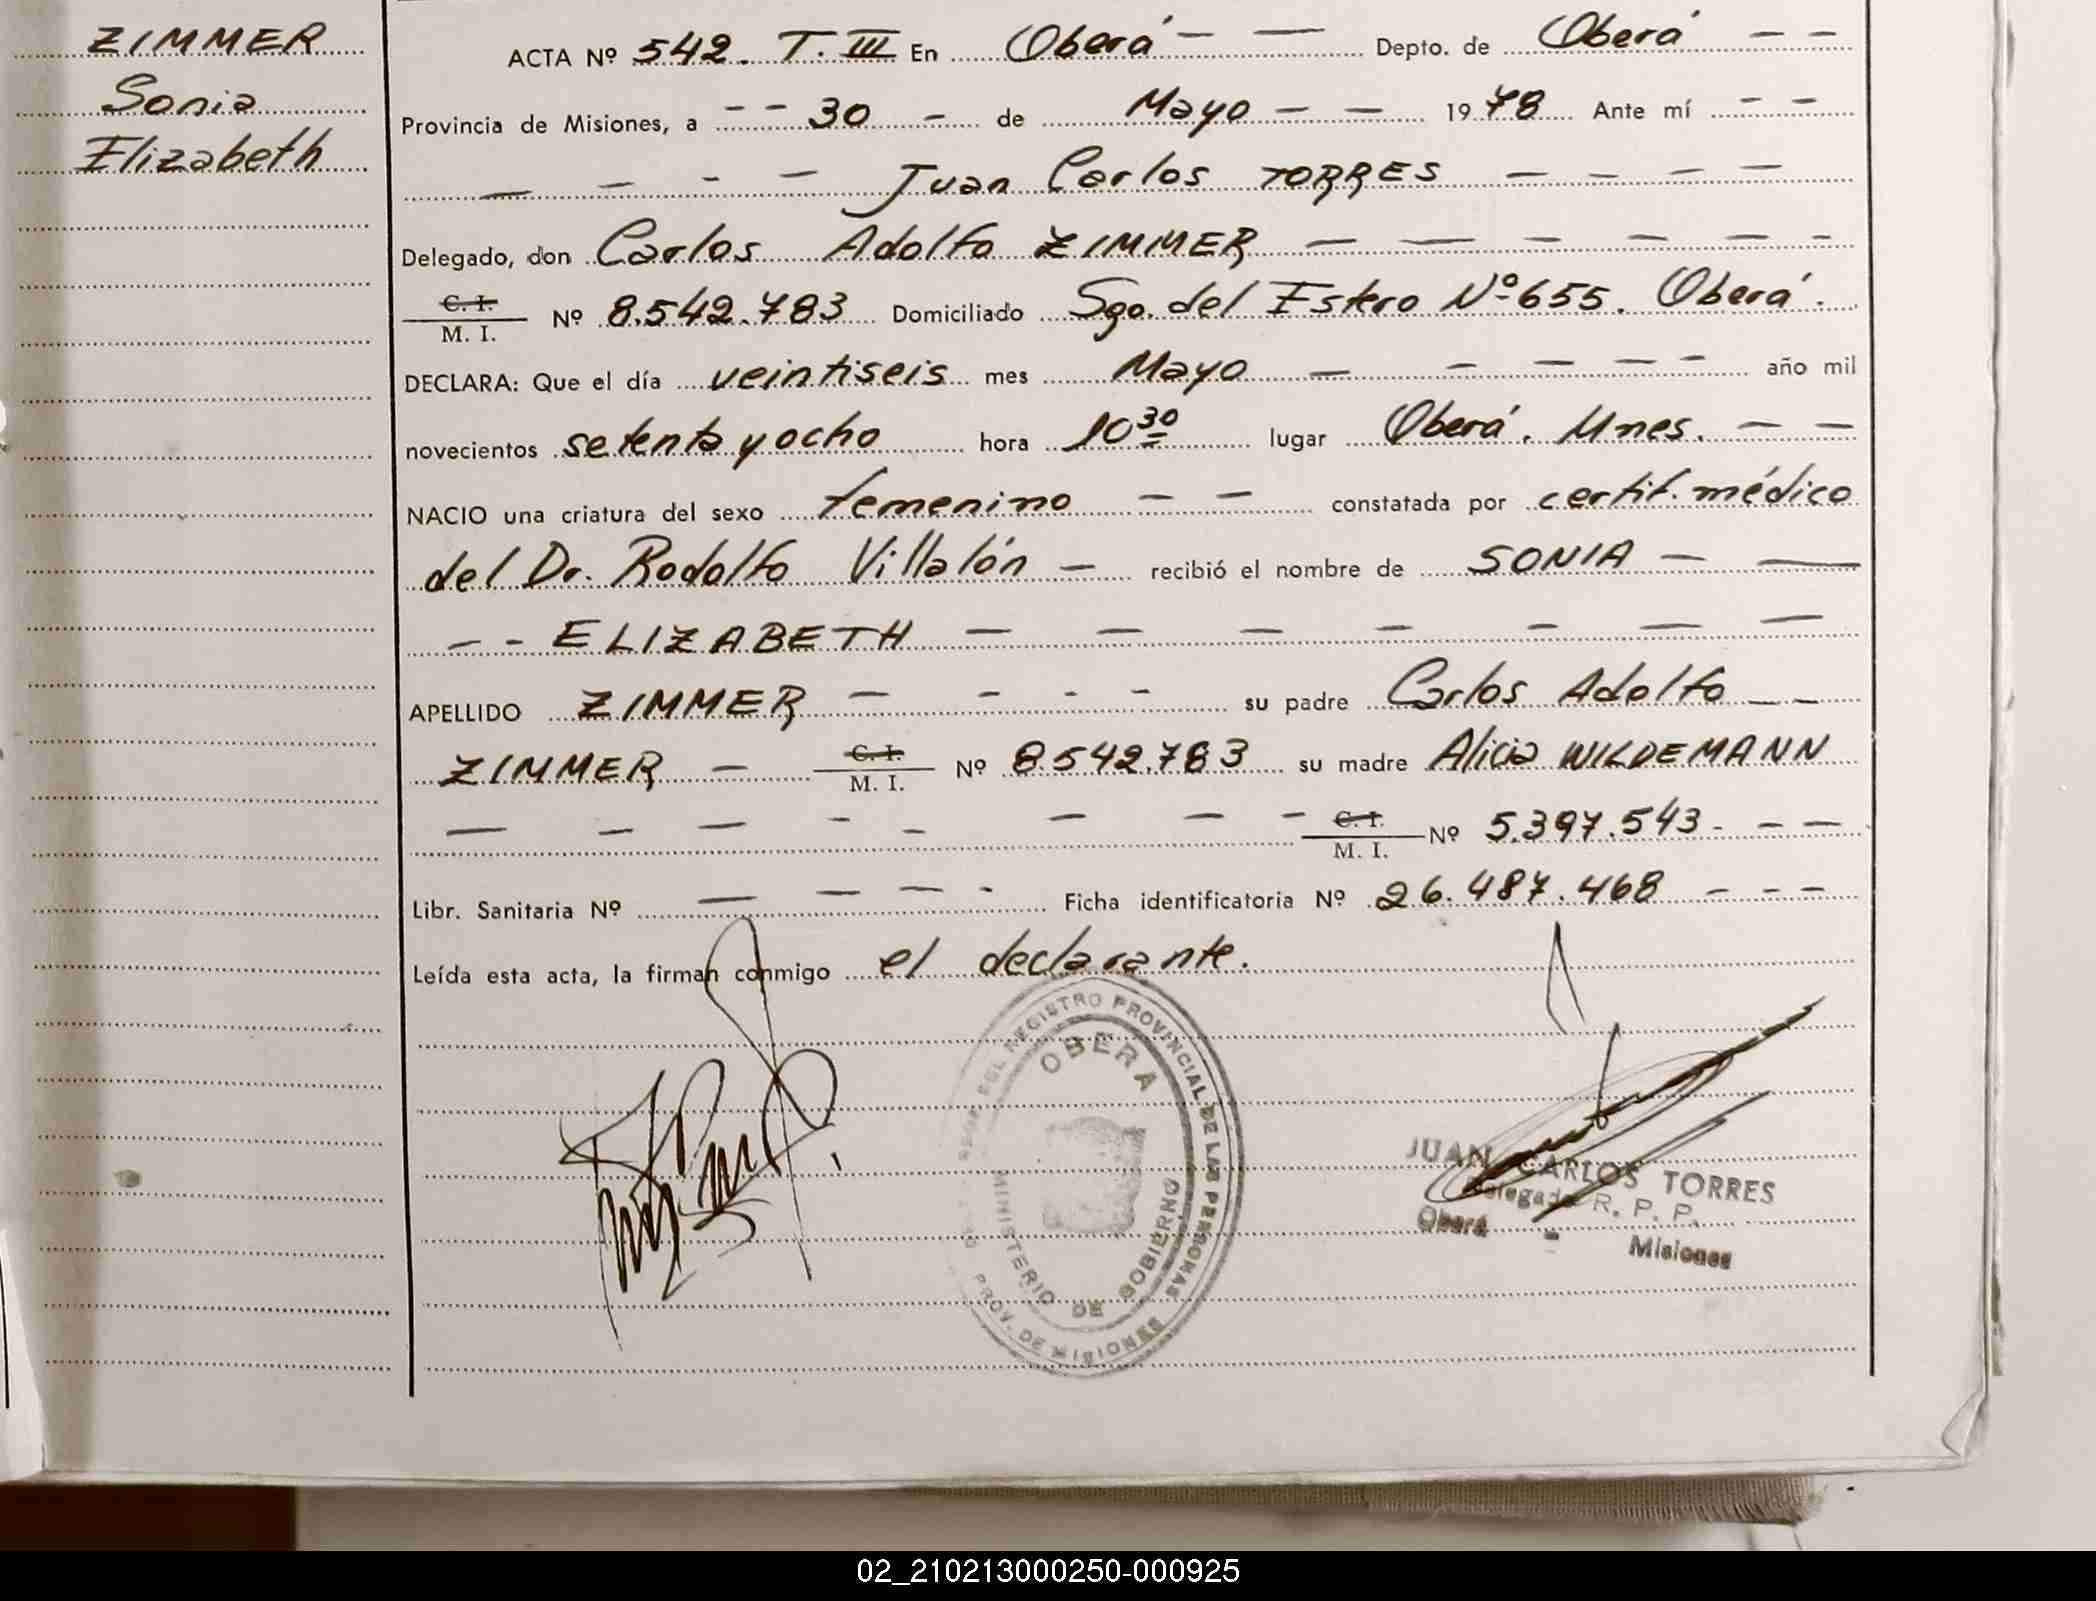 ZIMMER
Sonia
Elizabeth
ACTA Nº 542. T. III En Oberá — — Depto. de Oberá — —
Provincia de Misiones, a - - 30 - de Mayo — — 1978 Ante mí - -
— — - — Juan Carlos TORRES — — — —
Delegado, don Carlos Adolfo ZIMMER — — — — — -
C. I.
M. I. Nº 8.542.783 Domiciliado Sgo. del Estero Nº 655. Oberá.
DECLARA: Que el día veintiseis mes Mayo — — — — — año mil
novecientos setenta y ocho hora 10 30 lugar Oberá. Mnes. — —
NACIO una criatura del sexo femenino — — constatada por certif. médico
del Dr. Rodolfo Villalón — recibió el nombre de SONIA — —
- - ELIZABETH — — — — — — —
APELLIDO ZIMMER — - - - su padre Carlos Adolfo — —
ZIMMER — C. I. M. I. Nº 8.542.783 su madre Alicia WILDEMANN
— — — - — — — - C. I. M. I. Nº 5.397.543 - — —
Libr. Sanitaria Nº — — — - Ficha identificatoria Nº 26.487.468 — - —
Leída esta acta, la firman conmigo el declarante.
REGISTRO PROVINCIAL DE LAS PERSONAS
OBERA
MINISTERIO DE GOBIERNO
PROV. DE MISIONES
JUAN CARLOS TORRES
Delegado R. P. P.
Oberá - Misiones
02_210213000250-000925